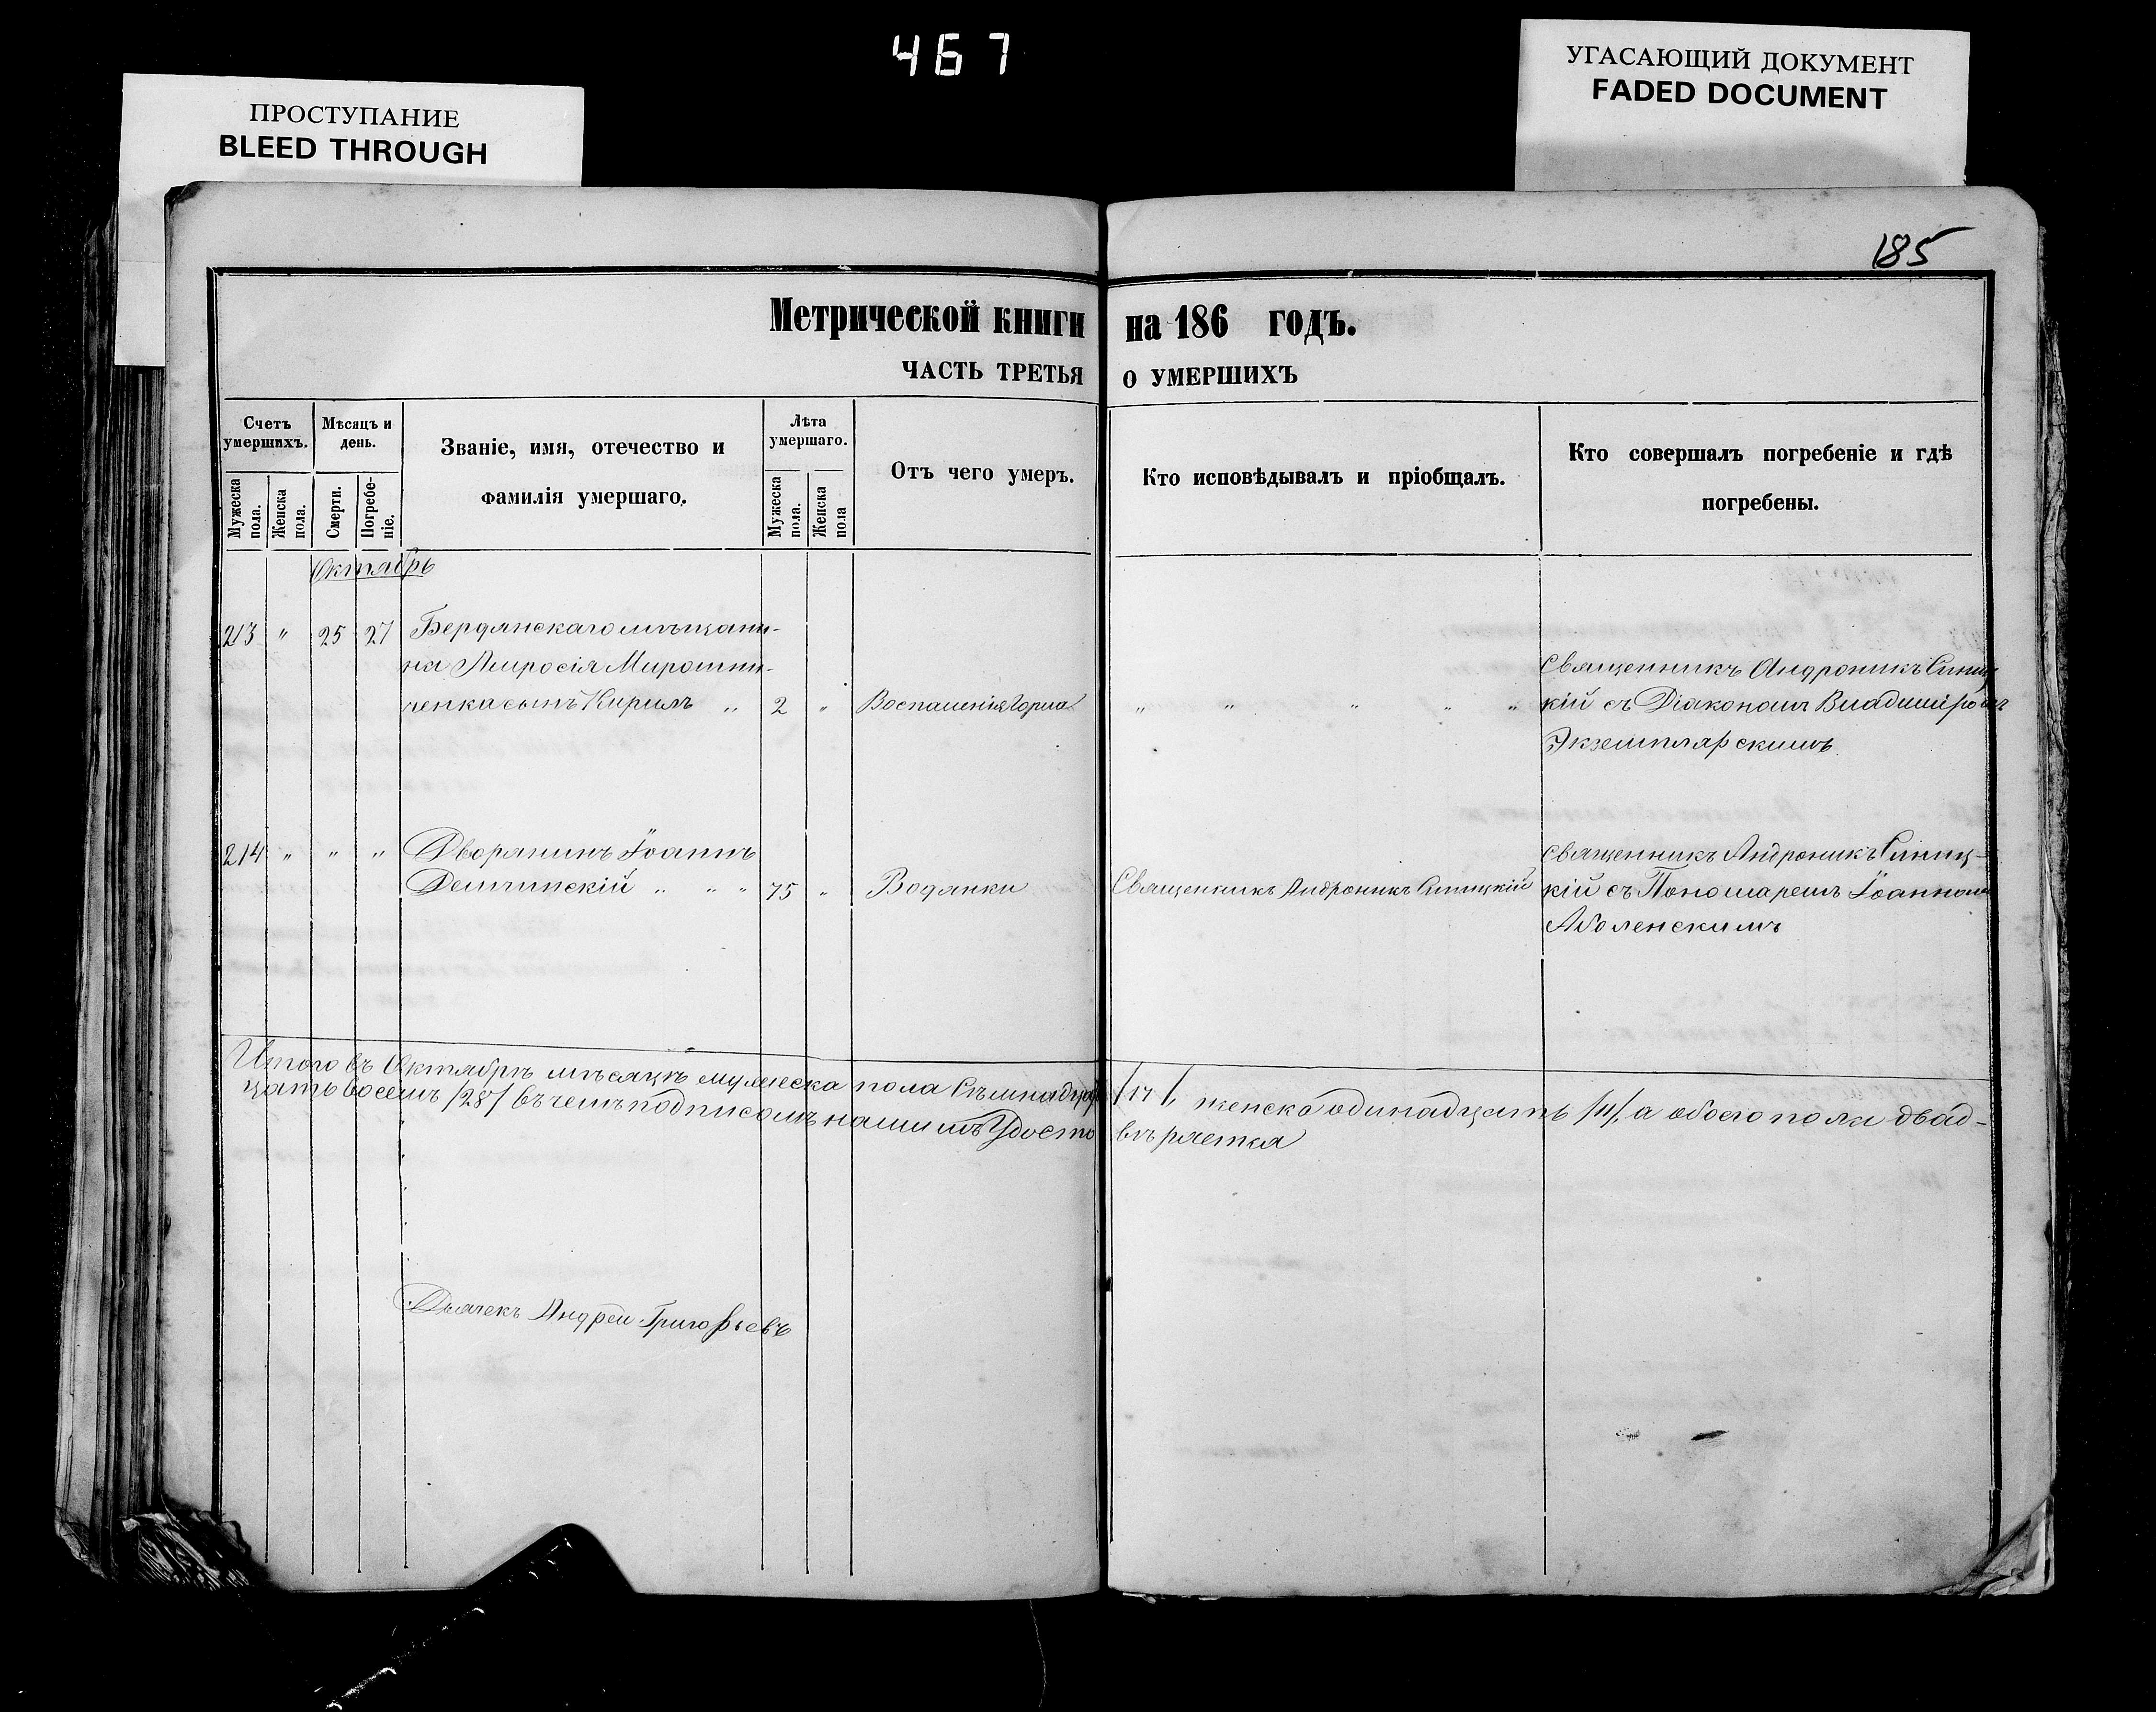 467
ПРОСТУПАНИЕ
BLEED THROUGH
УГАСАЮЩИЙ ДОКУМЕНТ
FADED DOCUMENT
185
Метрической книги на 186 годъ.
ЧАСТЬ ТРЕТЬЯ О УМЕРШИХЪ
Счетъ умершихъ.
Мужеска пола.
Женска пола.
Мѣсяцъ и день.
Смерти.
Погребе-ніе.
Званіе, имя, отечество и
фамилія умершаго.
Лѣта умершаго.
Мужеска пола.
Женска пола
Отъ чего умеръ.
Кто исповѣдывалъ и пріобщалъ.
Кто совершалъ погребеніе и гдѣ
погребены.
Октябрь
213 " 25 27 Бердянскаго мѣщани-
на Амросія Мирошни- Священникъ Андроникъ Синиц
ченка сынъ Кирилъ " 2 " Воспаленія горла " " " " " кій съ Діакономъ Владиміромъ
Экземплярскимъ
214 " " " Дворянинъ Іоаннъ Священникъ Андроникъ Синиц-
" " " 75 " Водянки Священникъ Андроникъ Синицкій кій съ Пономаремъ Іоанномъ
Аболенскимъ
Итого въ Октябрѣ мѣсяцѣ мужеска пола Сѣмнадцать /17/, женска одинадцать /11/, а обоего пола двад-
цать восемъ /28/ въ чемъ подписомъ нашимъ Удосто вѣряется
Дьячекъ Андрей Григорьевъ